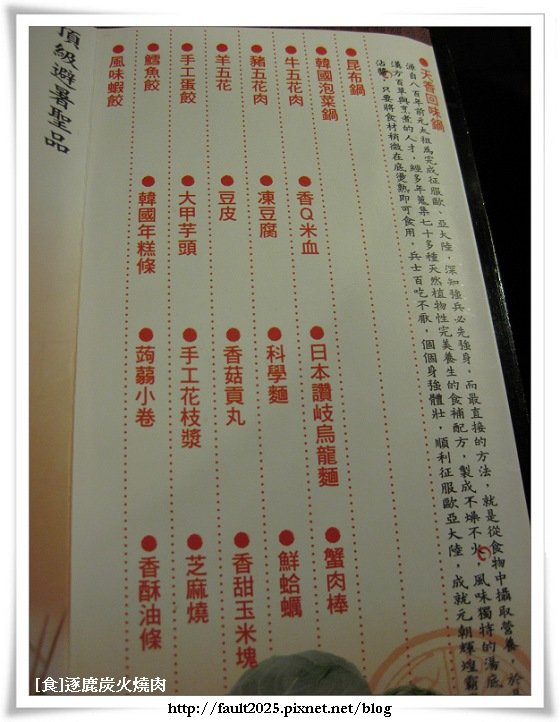 ●天香回味鍋
源自八百年前元太祖為完成征服歐、亞大陸，深知強兵必先強身，而最直接的方法，就是從食物中攝取營養，於
漢方百草與烹煮的人才，經多年蒐集七十多種天然植物性完美養生的食補配方，製成不燥不火，風味獨特的湯底
沾醬，只要將食材稍微在底燙熟即可食用，兵士百吃不厭，個個身強體壯，順利征服歐亞大陸，成就元朝輝煌霸
●昆布鍋
●韓國泡菜鍋 ●香Q米血 ●日本讚岐烏龍麵 ●蟹肉棒
●牛五花肉 ●凍豆腐 ●科學麵 ●鮮蛤蠣
●豬五花肉 ●豆皮 ●香菇貢丸 ●香甜玉米塊
●羊五花 ●大甲芋頭 ●手工花枝漿 ●芝麻燒
●手工蛋餃 ●韓國年糕條 ●蒟蒻小卷 ●香酥油條
●鱈魚餃
●風味蝦餃
頂級避暑聖品
[食]逐鹿炭火燒肉
http://fault2025.pixnet.net/blog